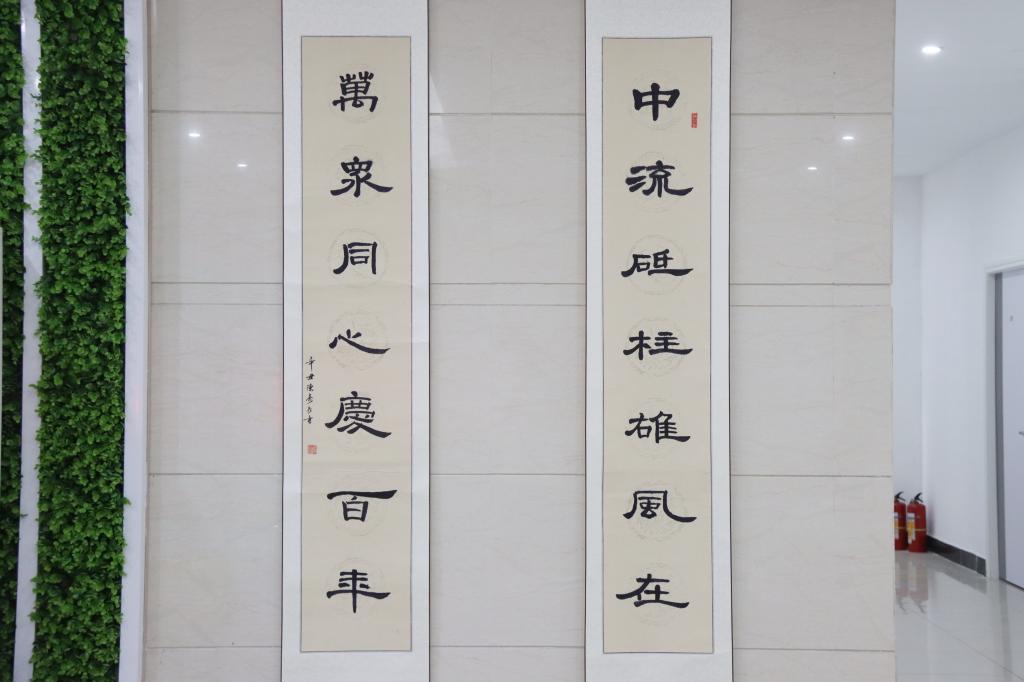 中流砥柱雄風在
萬眾同心慶百年
辛丑